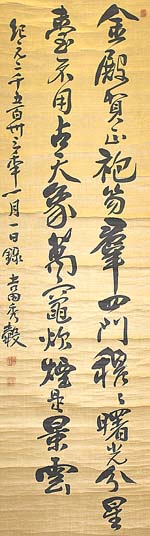 金殿賀正袍笏羣四門穆々曙光分星
臺不用占天象萬竈炊煙是景雲
紀元二千五百卅三年一月一日録 吉田秀穀